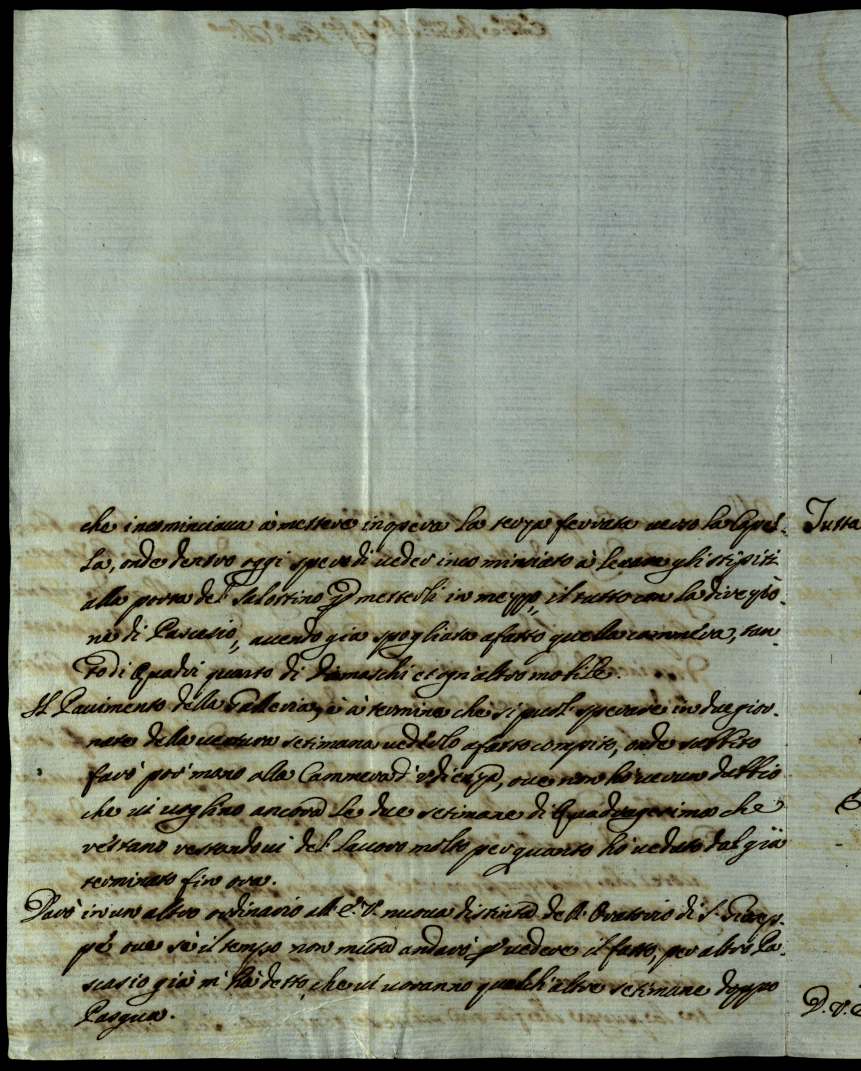 che incominciava à mettere in opera la terza ferrata verso la Capel-
la, onde dentro oggi spero di veder incominciato à levare gli stipiti
alla porta del Salottino p metterli in mezzo, il tutto con la direzio-
ne di Pascasio, avendo già spogliata afatto quella cammera, tan-
to di Quadri quanto di damaschi et ogn'altro mobile.
Il Pavimento della Galleria, è à termine che si può sperare in due gior-
nate della ventura setimana vederlo afatto compito, onde subbito
farò por mano alla Cammera d'udienza, ove non hò verun dubbio
che vi voglino ancora le due setimane di Quadragesima che
restano restandovi del lavoro molto per quanto hò veduto dal già
terminato fin ora.
Darò in un altro ordinario all'E.V. nuova distinta dell'Oratorio di S. Giusep-
pe ove se il tempo non muta andarò p vedere il fatto, per altro Pa-
scasio già m'hà detto che vi voranno qualch'altre setimane doppo
Pasqua.
Tutta
D.V.E